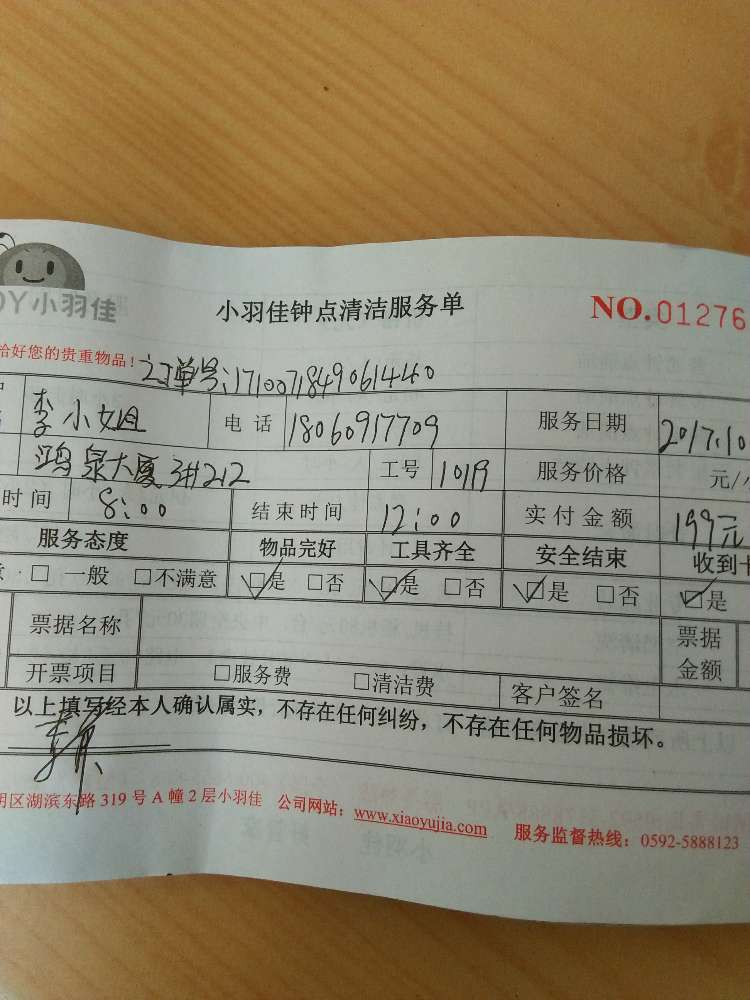 OY小羽佳
小羽佳钟点清洁服务单
NO.01276
给好您的贵重物品！
订单号:17100718490614460
李小姐 电话 18060917709 服务日期 2017.10
鸿泉大厦3#212 工号 1019 服务价格 元/
时间 8:00 结束时间 12:00 实付金额 199元
服务态度 物品完好 工具齐全 安全结束 收到
□ 一般 □不满意 ☑是 □否 ☑是 □否 ☑是 □否 ☑是
票据名称 票据金额
开票项目 □服务费 □清洁费 客户签名
以上填写经本人确认属实，不存在任何纠纷，不存在任何物品损坏。
明区湖滨东路319号A幢2层小羽佳 公司网站：www.xiaoyujia.com 服务监督热线：0592-5888123